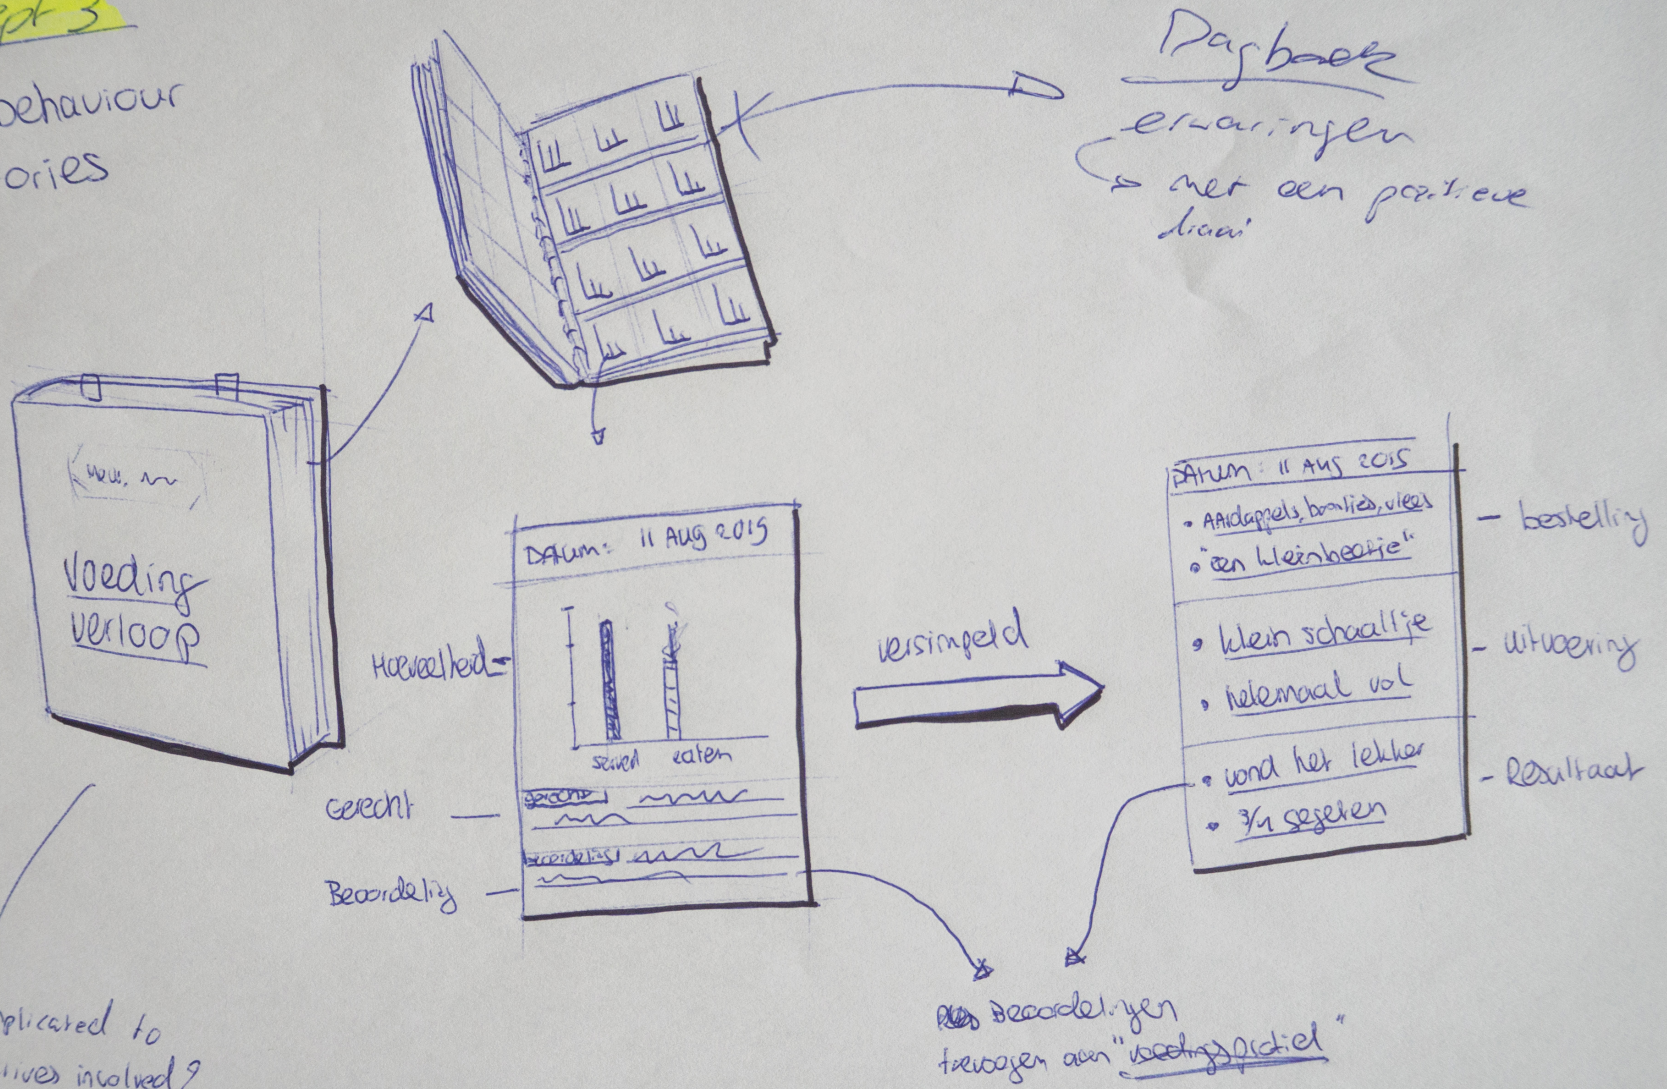 ept 3
behaviour
ories
Dagboek
ervaringen
met een positieve
draai
Voeding
verloop
Datum: 11 Aug 2015
Hoeveelheid
served eaten
Gerecht
gerecht
Beoordeling
beoordeling
versimpeld
Datum: 11 Aug 2015
• Aardappels, boontjes, vlees
• "een klein beetje"
- bestelling
• klein schaaltje
• helemaal vol
- uitvoering
• vond het lekker
• 3/4 gegeten
- Resultaat
Beoordelingen
toevoegen aan "voedingsprofiel"
plicated to
tives involved?